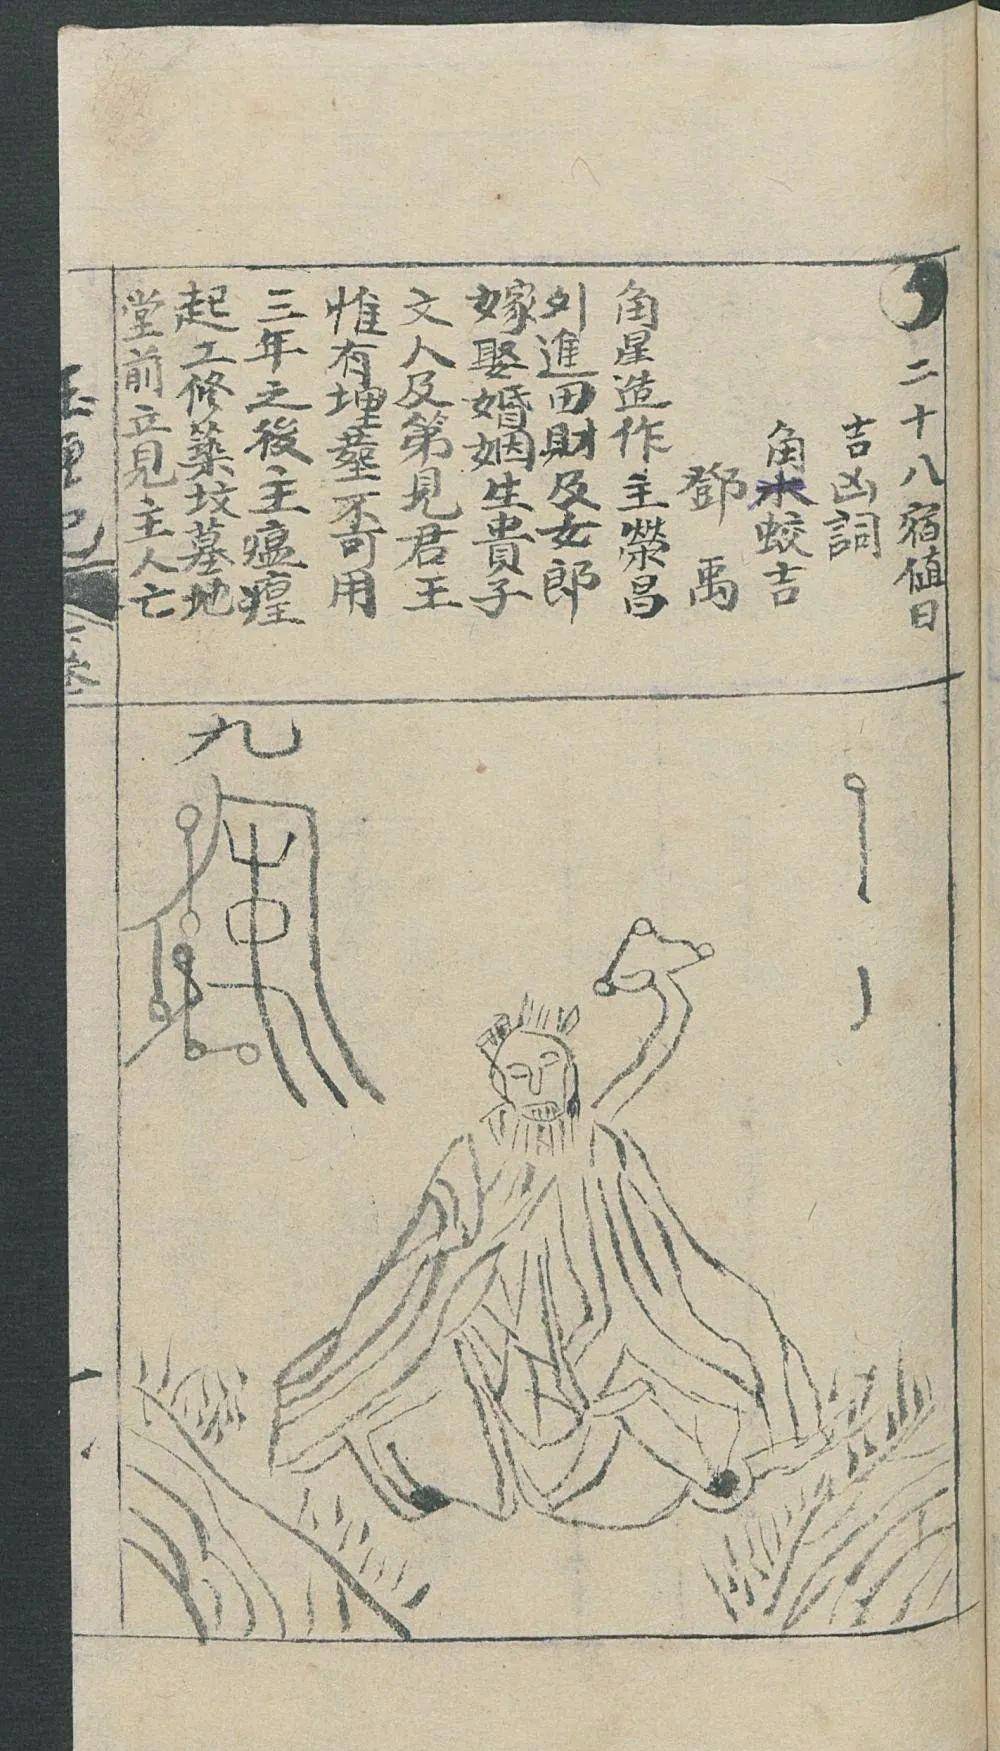 二十八宿値日
吉凶詞
角木蛟吉
鄧禹
角星造作主榮昌
外進田財及女郎
嫁娶婚姻生貴子
文人及第見君王
惟有埋塟不可用
三年之後主瘟㾮
起工修築坟墓地
堂前立見主人亡
九